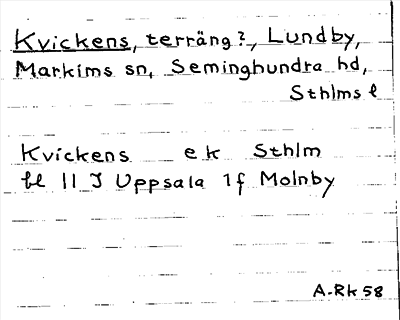 Kvickens, terräng?, Lundby,
Markims sn, Seminghundra hd,
Sthlms l
Kvickens e k Sthlm
bl 11 J Uppsala 1f Molnby
A-Rk 58